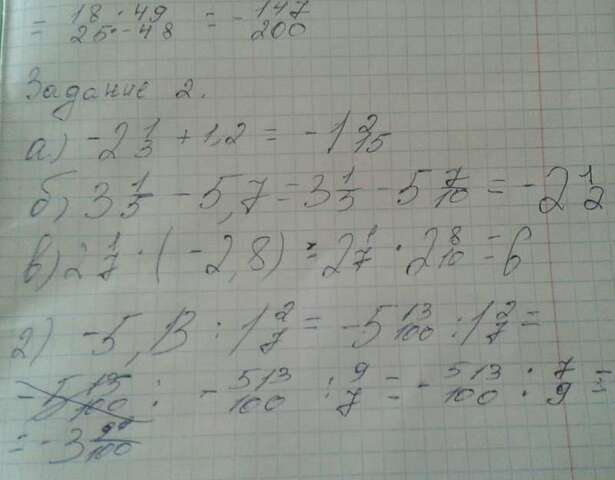 = 18 · 49 / 25 · -48 = - 147/200
Задание 2.
а) -2 1/3 + 1,2 = -1 2/15
б) 3 1/5 - 5,7 = 3 1/5 - 5 7/10 = -2 1/2
в) 2 1/7 · (-2,8) = 2 1/7 · 2 8/10 = 6
г) -5,13 : 1 2/7 = -5 13/100 : 1 2/7 =
- 513/100 : 9/7 = - 513/100 · 7/9 =
= -3 99/100